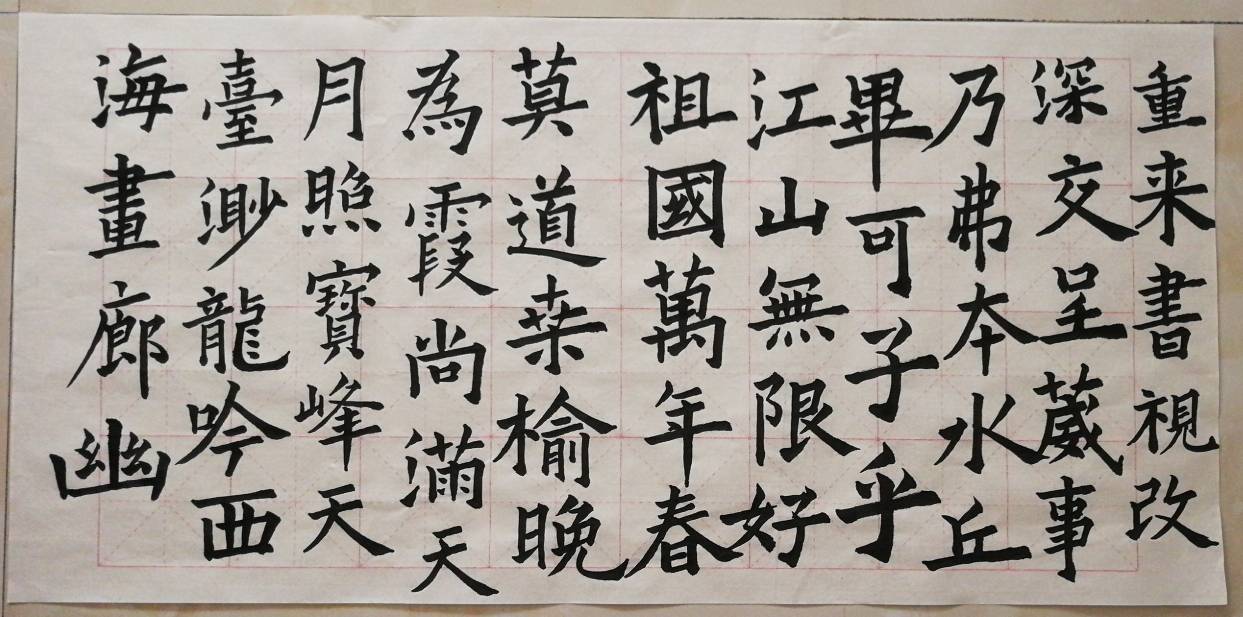 重来書視改
深交呈葳事
乃弗本水丘
畢可子乎
江山無限好
祖國萬年春
莫道桒榆晚
為霞尚滿天
月照寶峰天
臺渺龍吟西
海畫廊幽